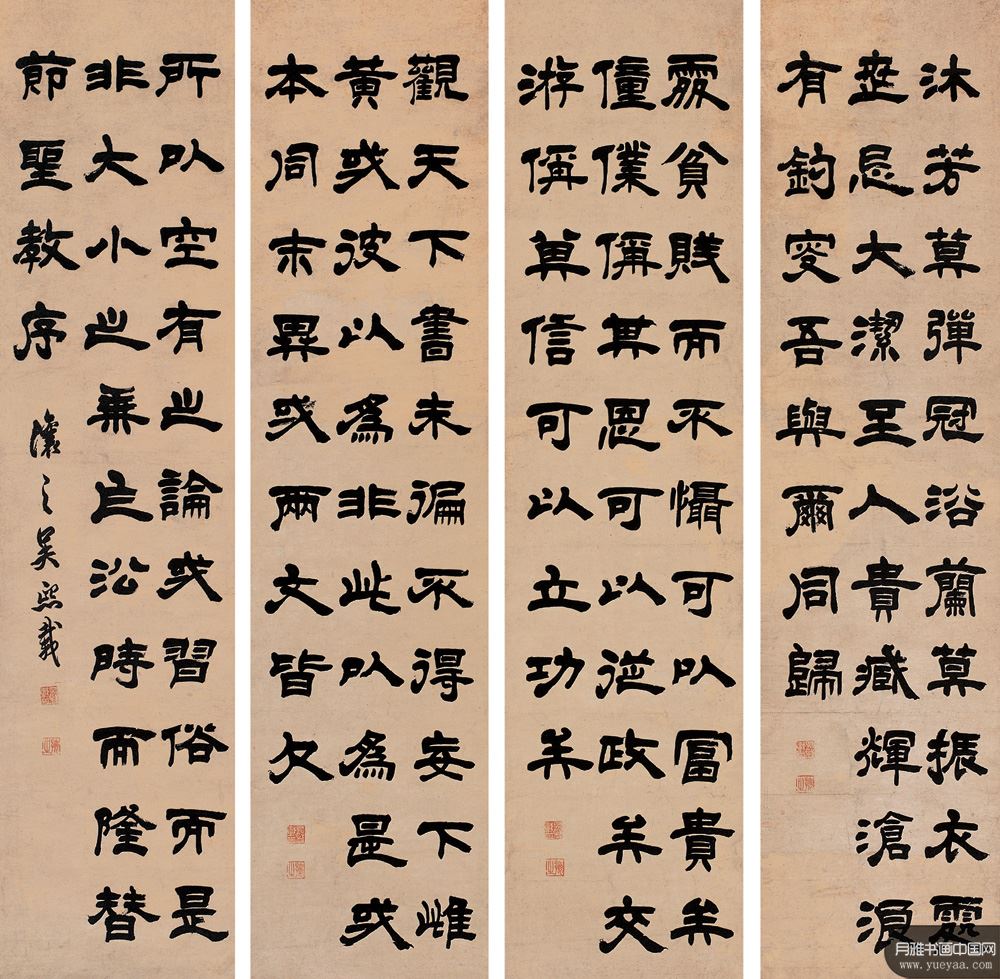 沐芳莫彈冠浴蘭莫振衣處
世忌大潔至人貴藏輝滄浪
有釣叟吾與爾同歸
處貧賤而不懾可以富貴矣
僮僕偁其恩可以從政矣交
游偁其信可以立功矣
觀天下書未徧不得妄下雌
黃或彼以為非此以為是或
本同末異或兩文皆欠
所以空有之論或習俗而是
非大小之乘乍沿時而隆替
節聖教序
讓之吳熙載
月雅书画中国网
www.yueyaa.com